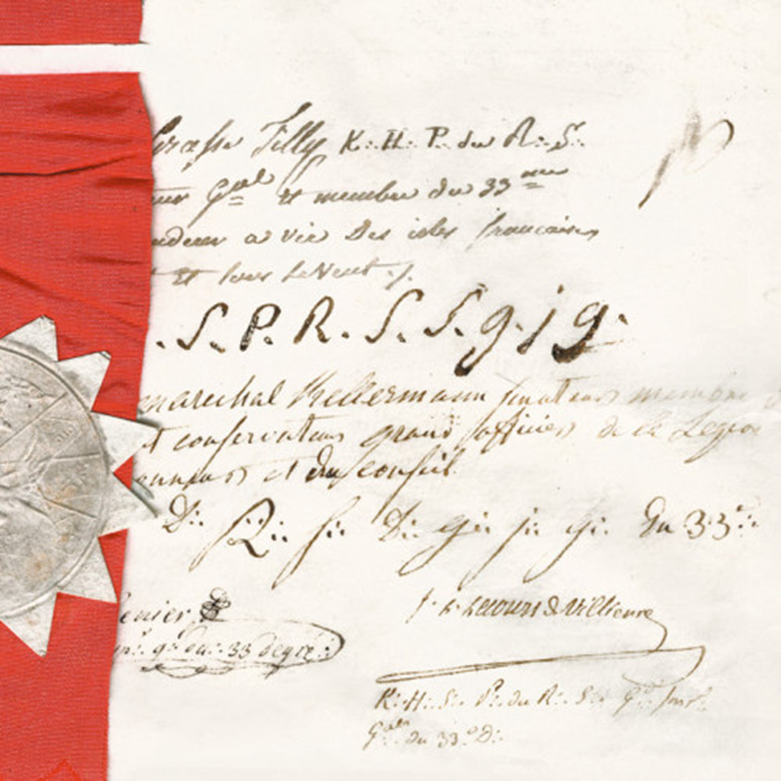 Grasse Tilly K∴ H∴ P. du R∴ S∴
Gral et membre du 33me
a vie Des isles francaises
et sous le Vent ∴
. S. P. R. S. S. g. j g.
marechal Kellermann senateur membre
conservateur grand officier de la Legion
et du conseil
D∴ R∴ s∴ D∴ g∴ j∴ g∴ Du 33e∴
enier
g. du∴ 33 degre∴
de Villienne
K∴ H∴ S∴ P∴ du R∴ S∴ Gd insp.
Gal du 33e D∴